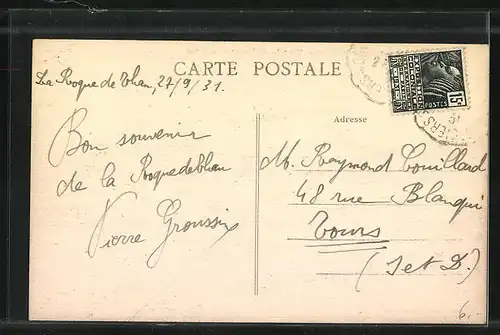 La Roque de Than, 27/9/31.
CARTE POSTALE
Adresse
POSTES
15c
Bon souvenir
de la Roquedethan
Pierre Groussin
M. Raymond Couillard
48 rue Blanqui
Tours
(I et L.)
6.-